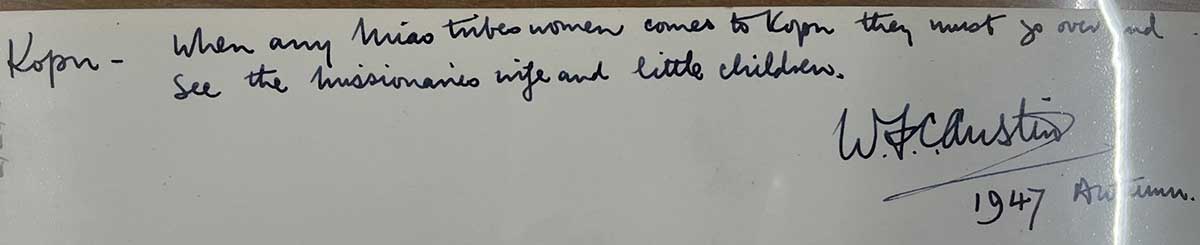 Kopu - When any Miao tribeswomen comes to Kopu they must go over and
see the missionaries wife and little children.
W.F.C. Austin
1947 Autumn.